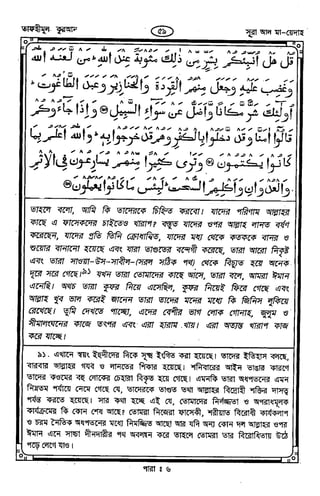 তাফহীমুল কুরআন
৫৯
সূরা আল মা-য়েদাহ
قُلْ هَلْ أُنَبِّئُكُمْ بِشَرٍّ مِّنْ ذٰلِكَ مَثُوبَةً عِنْدَ اللّٰهِ مَنْ لَّعَنَهُ اللّٰهُ
وَغَضِبَ عَلَيْهِ وَجَعَلَ مِنْهُمُ الْقِرَدَةَ وَالْخَنَازِيرَ وَعَبَدَ الطَّاغُوتَ
أُولٰئِكَ شَرٌّ مَّكَانًا وَّأَضَلُّ عَنْ سَوَاءِ السَّبِيلِ ۝ وَإِذَا جَاءُوكُمْ
قَالُوا آمَنَّا وَقَدْ دَّخَلُوا بِالْكُفْرِ وَهُمْ قَدْ خَرَجُوا بِهِ وَاللّٰهُ أَعْلَمُ بِمَا
كَانُوا يَكْتُمُونَ ۝ وَتَرٰى كَثِيرًا مِّنْهُمْ يُسَارِعُونَ فِي الْإِثْمِ
وَالْعُدْوَانِ وَأَكْلِهِمُ السُّحْتَ لَبِئْسَ مَا كَانُوا يَعْمَلُونَ ۝
তাহলে বলো, আমি কি তাদেরকে চিহ্নিত করবো। যাদের পরিণাম আল্লাহর
কাছে এ ফাসেকদের চাইতেও খারাপ? বস্তুত যাদের ওপর আল্লাহ লানত বর্ষণ
করেছেন, যাদের প্রতি তিনি ক্রোধান্বিত, যাদের মধ্য থেকে কতককে বানর ও
শুয়োর বানানো হয়েছে এবং যারা তাগুতের বন্দেগী করেছে, তারা আরো নিকৃষ্ট
এবং তারা সাওয়া-উস-সাবীল-(সরল সঠিক পথ) থেকে বিচ্যুত হয়ে অনেক
দূরে সরে গেছে।৯১ যখন তারা তোমাদের কাছে আসে, তারা বলে, আমরা ঈমান
এনেছি। অথচ তারা কুফর নিয়ে এসেছিল, কুফর নিয়েই ফিরে গেছে এবং
আল্লাহ খুব ভাল করেই জানেন তারা তাদের মনের মধ্যে কি জিনিস লুকিয়ে
রেখেছে। তুমি দেখতে পাচ্ছো, এদের বেশীর ভাগ লোক গোনাহ, জুলুম ও
সীমালংঘনের কাজে তৎপর এবং এরা হারাম খায়। এরা অত্যন্ত খারাপ কাজ
করে যাচ্ছে।
৯১. এখানে স্বয়ং ইহুদীদের দিকে সূক্ষ্ম ইংগিত করা হয়েছে। তাদের ইতিহাস বলছে,
বারবার আল্লাহর গযব ও লানতের শিকার হয়েছে। শনিবারের আইন ভাঙার কারণে
তাদের কওমের বহু লোকের চেহারা বিকৃত হয়ে গেছে। এমনকি তারা অধপতনের এমন
নিম্নতম পর্যায়ে নেমে গেছে যে, তাদেরকে তাগুত তথা আল্লাহর বিদ্রোহী শক্তির দাসত্ব
পর্যন্ত করতে হয়েছে। সার কথা হচ্ছে এই যে, তোমাদের নির্লজ্জতা ও অপরাধমূলক
কার্যক্রমের কি কোন শেষ আছে? তোমরা নিজেরা ফাসেকী, শরীয়াত বিরোধী কার্যকলাপ
ও চরম নৈতিক অধপতনের মধ্যে নিমজ্জিত আছো আর যদি অন্য কোন দল আল্লাহর ওপর
ঈমান এনে সাচ্চা দীনদারীর পথ অবলম্বন করে তাহলে তোমরা তার বিরোধিতায় উঠে
পড়ে লেগে যাও।
পারা : ৬